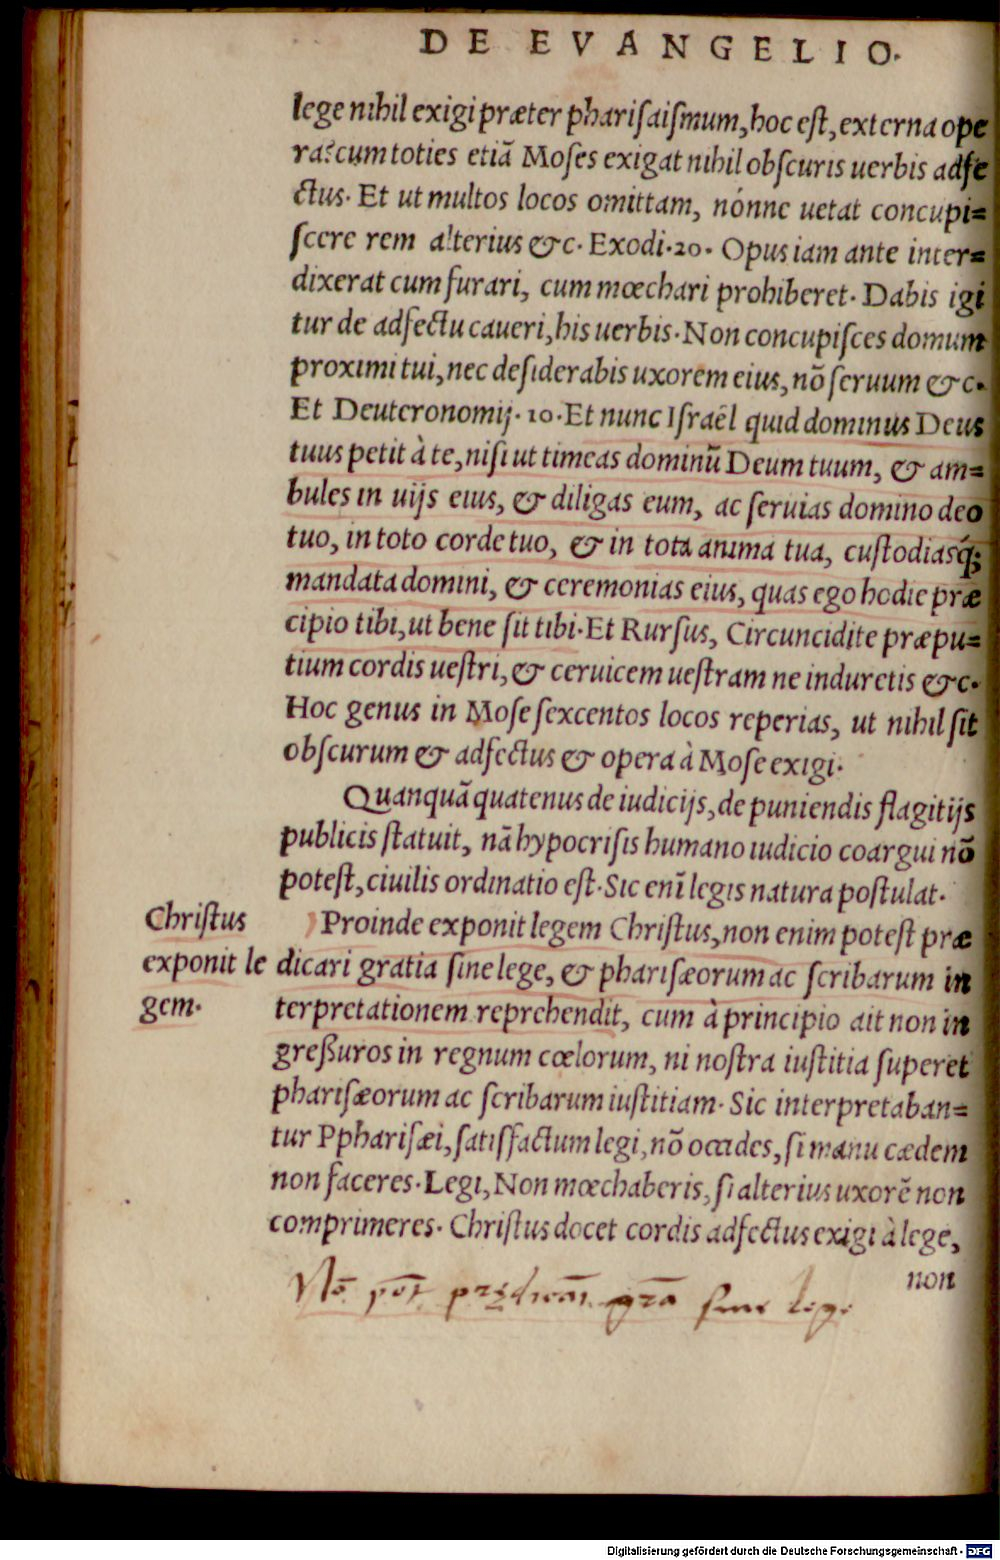 DE EVANGELIO.
lege nihil exigi præter phariſaiſmum, hoc eſt, externa ope
ra? cum toties etiā Moſes exigat nihil obſcuris uerbis adfe
ctus. Et ut multos locos omittam, nónne uetat concupi=
ſcere rem alterius &c. Exodi. 20. Opus iam ante inter=
dixerat cum furari, cum mœchari prohiberet. Dabis igi
tur de adfectu caueri, his uerbis. Non concupiſces domum
proximi tui, nec deſiderabis uxorem eius, nō ſeruum &c.
Et Deuteronomij. 10. Et nunc Iſraël quid dominus Deus
tuus petit à te, niſi ut timeas dominū Deum tuum, & am=
bules in uijs eius, & diligas eum, ac ſeruias domino deo
tuo, in toto corde tuo, & in tota anima tua, cuſtodiasq́;
mandata domini, & ceremonias eius, quas ego hodie præ
cipio tibi, ut bene ſit tibi. Et Rurſus, Circuncidite præpu=
tium cordis ueſtri, & ceruicem ueſtram ne induretis &c.
Hoc genus in Moſe ſexcentos locos reperias, ut nihil ſit
obſcurum & adfectus & opera à Moſe exigi.
Quanquā quatenus de iudicijs, de puniendis flagitijs
publicis ſtatuit, nā hypocriſis humano iudicio coargui nō
poteſt, ciuilis ordinatio eſt. Sic enī legis natura poſtulat.
Chriſtus
exponit le
gem.
Proinde exponit legem Chriſtus, non enim poteſt præ
dicari gratia ſine lege, & phariſæorum ac ſcribarum in
terpretationem reprehendit, cum à principio ait non in
greſſuros in regnum cœlorum, ni noſtra iuſtitia ſuperet
phariſæorum ac ſcribarum iuſtitiam. Sic interpretaban=
tur Pphariſæi, ſatiſfactum legi, nō occides, ſi manu cædem
non faceres. Legi, Non mœchaberis, ſi alterius uxorē non
comprimeres. Chriſtus docet cordis adfectus exigi à lege,
non
Nō pōt prædicari grā ſine lege
Digitalisierung gefördert durch die Deutsche Forschungsgemeinschaft - DFG